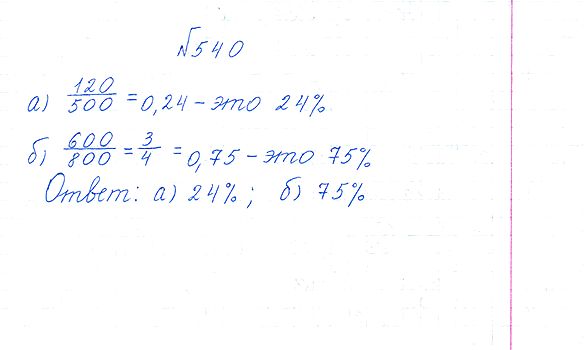 №540
а) 120/500 = 0,24 - это 24%
б) 600/800 = 3/4 = 0,75 - это 75%
Ответ: а) 24%; б) 75%